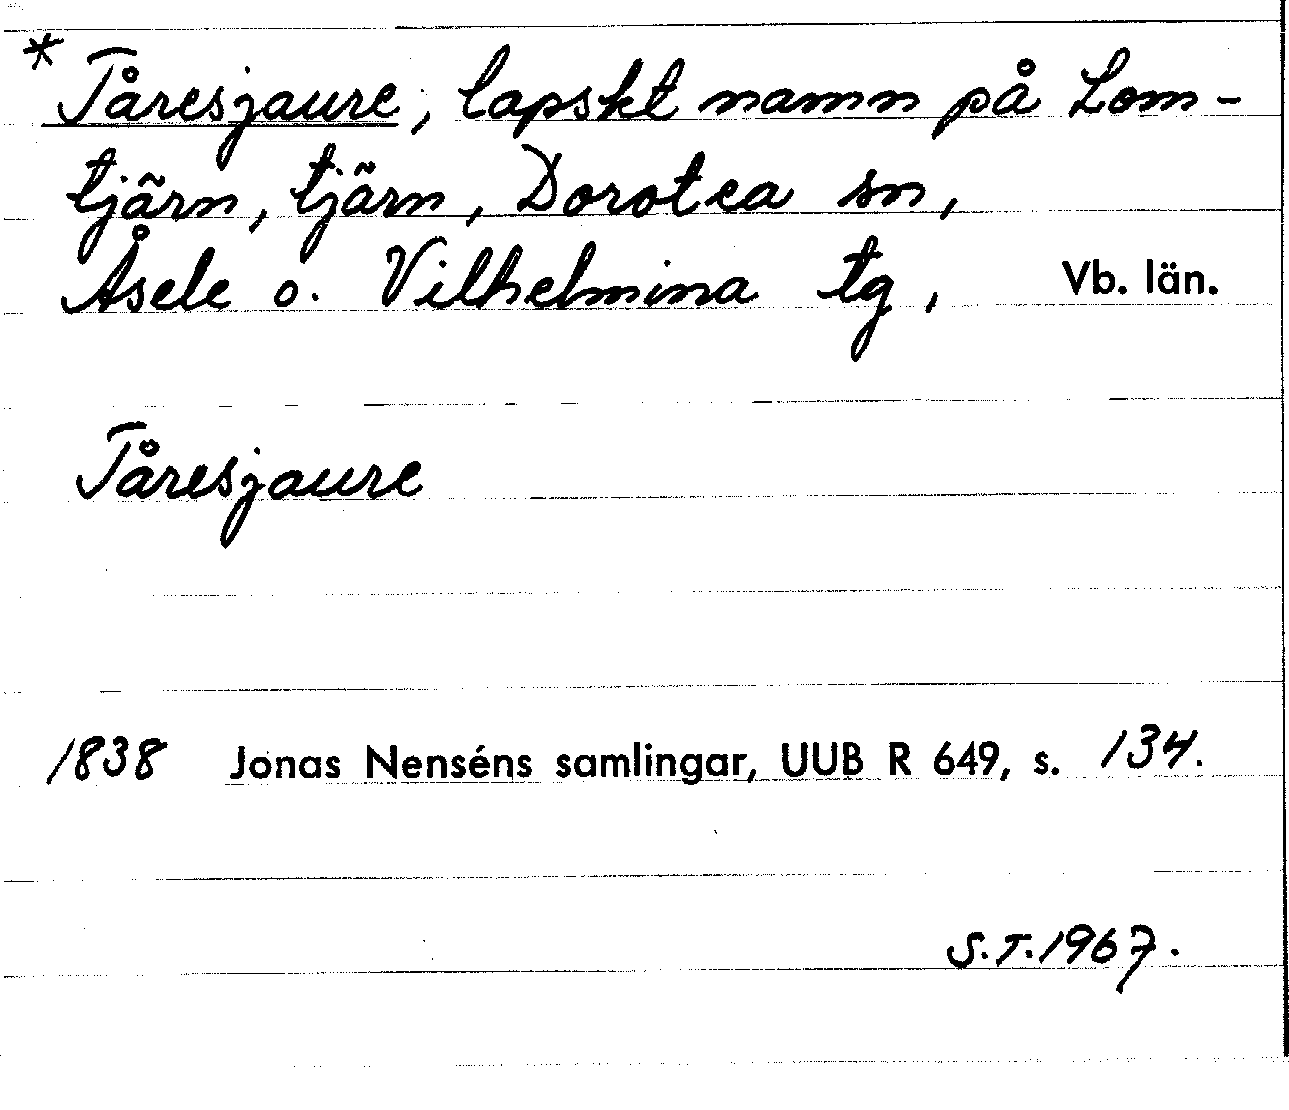 * Tåresjaure, lapskt namn på Lom-
tjärn, tjärn, Dorotea sn,
Åsele o. Vilhelmina tg, Vb. län.
Tåresjaure
1838 Jonas Nenséns samlingar, UUB R 649, s. 134.
S.T. 1967.